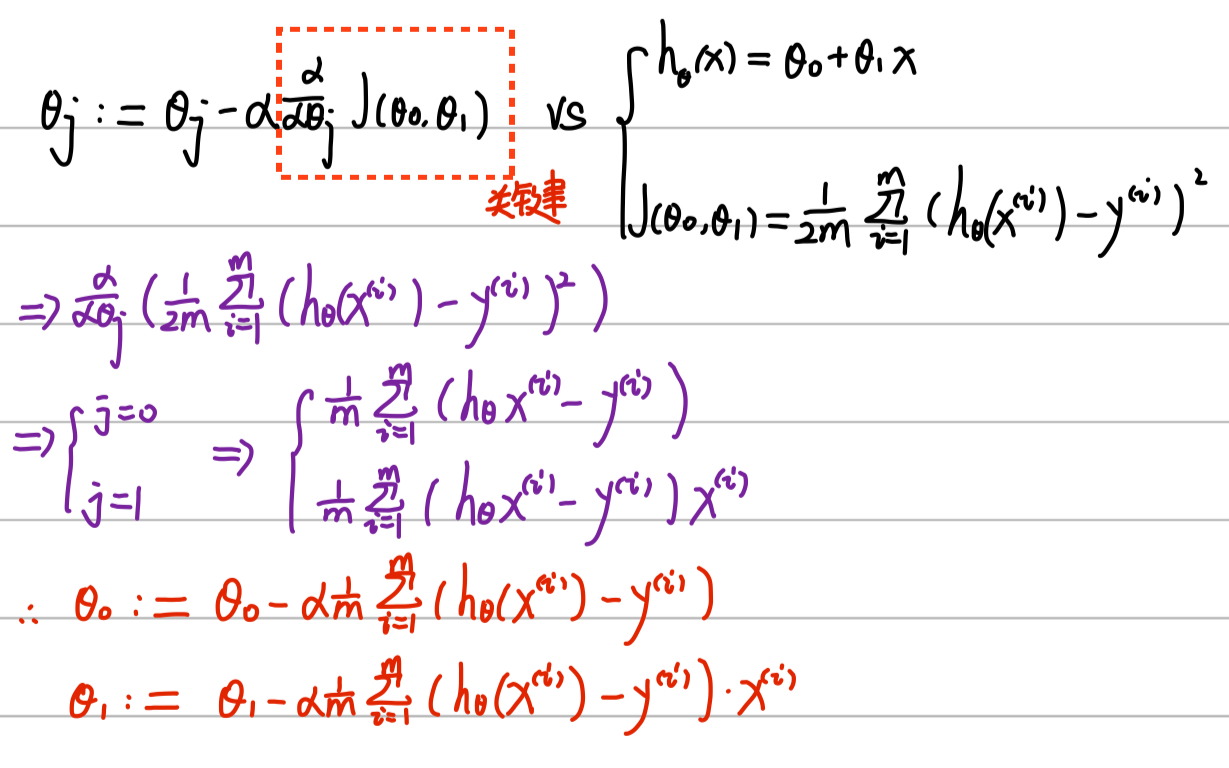 θj := θj - α α/αθj J(θ0, θ1) vs { hθ(x) = θ0 + θ1 x
J(θ0, θ1) = 1/2m ∑ i=1 m (hθ(x^(i)) - y^(i))^2
关键
=> α/αθj (1/2m ∑ i=1 m (hθ(x^(i)) - y^(i))^2)
=> { j=0 => { 1/m ∑ i=1 m (hθ x^(i) - y^(i))
j=1 1/m ∑ i=1 m (hθ x^(i) - y^(i)) x^(i)
∴ θ0 := θ0 - α 1/m ∑ i=1 m (hθ(x^(i)) - y^(i))
θ1 := θ1 - α 1/m ∑ i=1 m (hθ(x^(i)) - y^(i)) · x^(i)